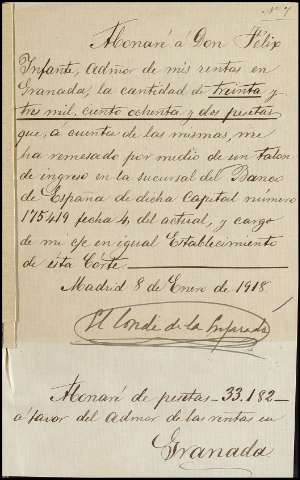 Nº 7
Abonaré á Don Félix
Infante, Admor de mis rentas en
Granada, la cantidad de treinta y
tres mil, ciento ochenta y dos pesetas
que, a cuenta de las mismas, me
ha remesado por medio de un talon
de ingreso en la sucursal del Banco
de España de dicha Capital número
175419 fecha 4 del actual, y cargo
de mi c/c en igual Establecimiento
de esta Córte
Madrid 8 de Enero de 1918
El Conde de la
Abonaré de pesetas - 33.182 -
á favor del Admor de las rentas en
Granada